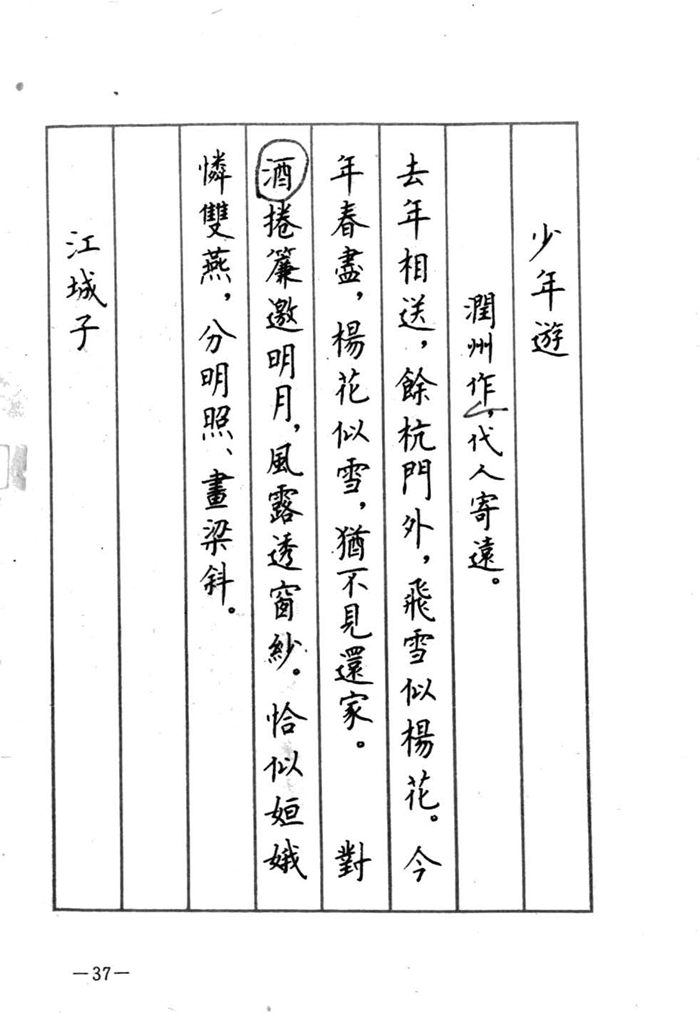 少年遊
潤州作，代人寄遠。
去年相送，餘杭門外，飛雪似楊花。今
年春盡，楊花似雪，猶不見還家。 對
酒捲簾邀明月，風露透窗紗。恰似姮娥
憐雙燕，分明照、畫梁斜。
江城子
—37—